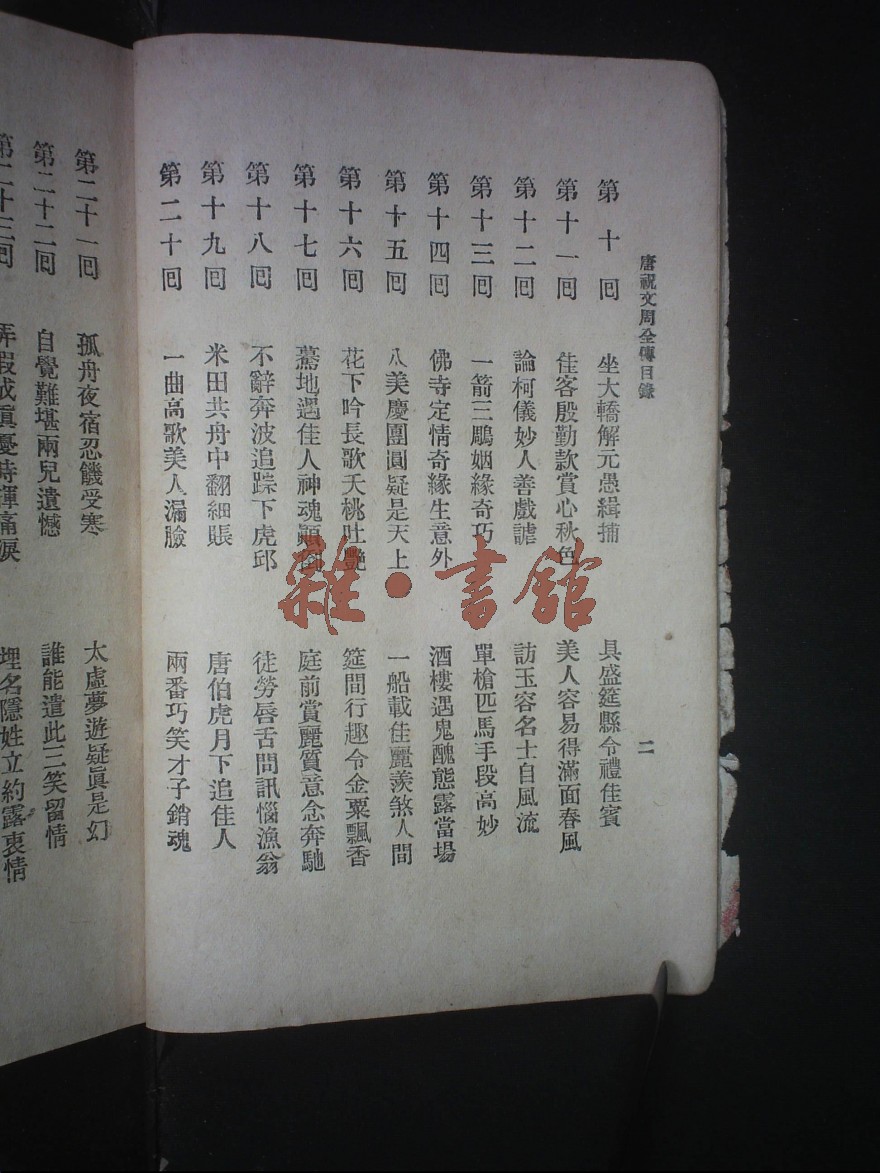 唐祝文周全傳目錄
二
第十回 坐大轎解元愚緝捕 具盛筵縣令禮佳賓
第十一回 佳客殷勤款賞心秋色 美人容易得滿面春風
第十二回 論柯儀妙人善戲謔 訪玉容名士自風流
第十三回 一箭三鵰姻緣奇巧 單槍匹馬手段高妙
第十四回 佛寺定情奇緣生意外 酒樓遇鬼醜態露當場
第十五回 八美慶團圓疑是天上 一船載佳麗羨煞人間
第十六回 花下吟長歌夭桃吐艷 筵間行趣令金粟飄香
第十七回 驀地遇佳人神魂顚倒 庭前賞麗質意念奔馳
第十八回 不辭奔波追踪下虎邱 徒勞唇舌問訊惱漁翁
第十九回 米田共舟中翻細賬 唐伯虎月下追佳人
第二十回 一曲高歌美人漏臉 兩番巧笑才子銷魂
第二十一回 孤舟夜宿忍饑受寒 太虛夢遊疑眞是幻
第二十二回 自覺難堪兩兒遺憾 誰能遣此三笑留情
第二十三回 弄假成眞憂時揮痛淚 埋名隱姓立約露衷情
雜·書館